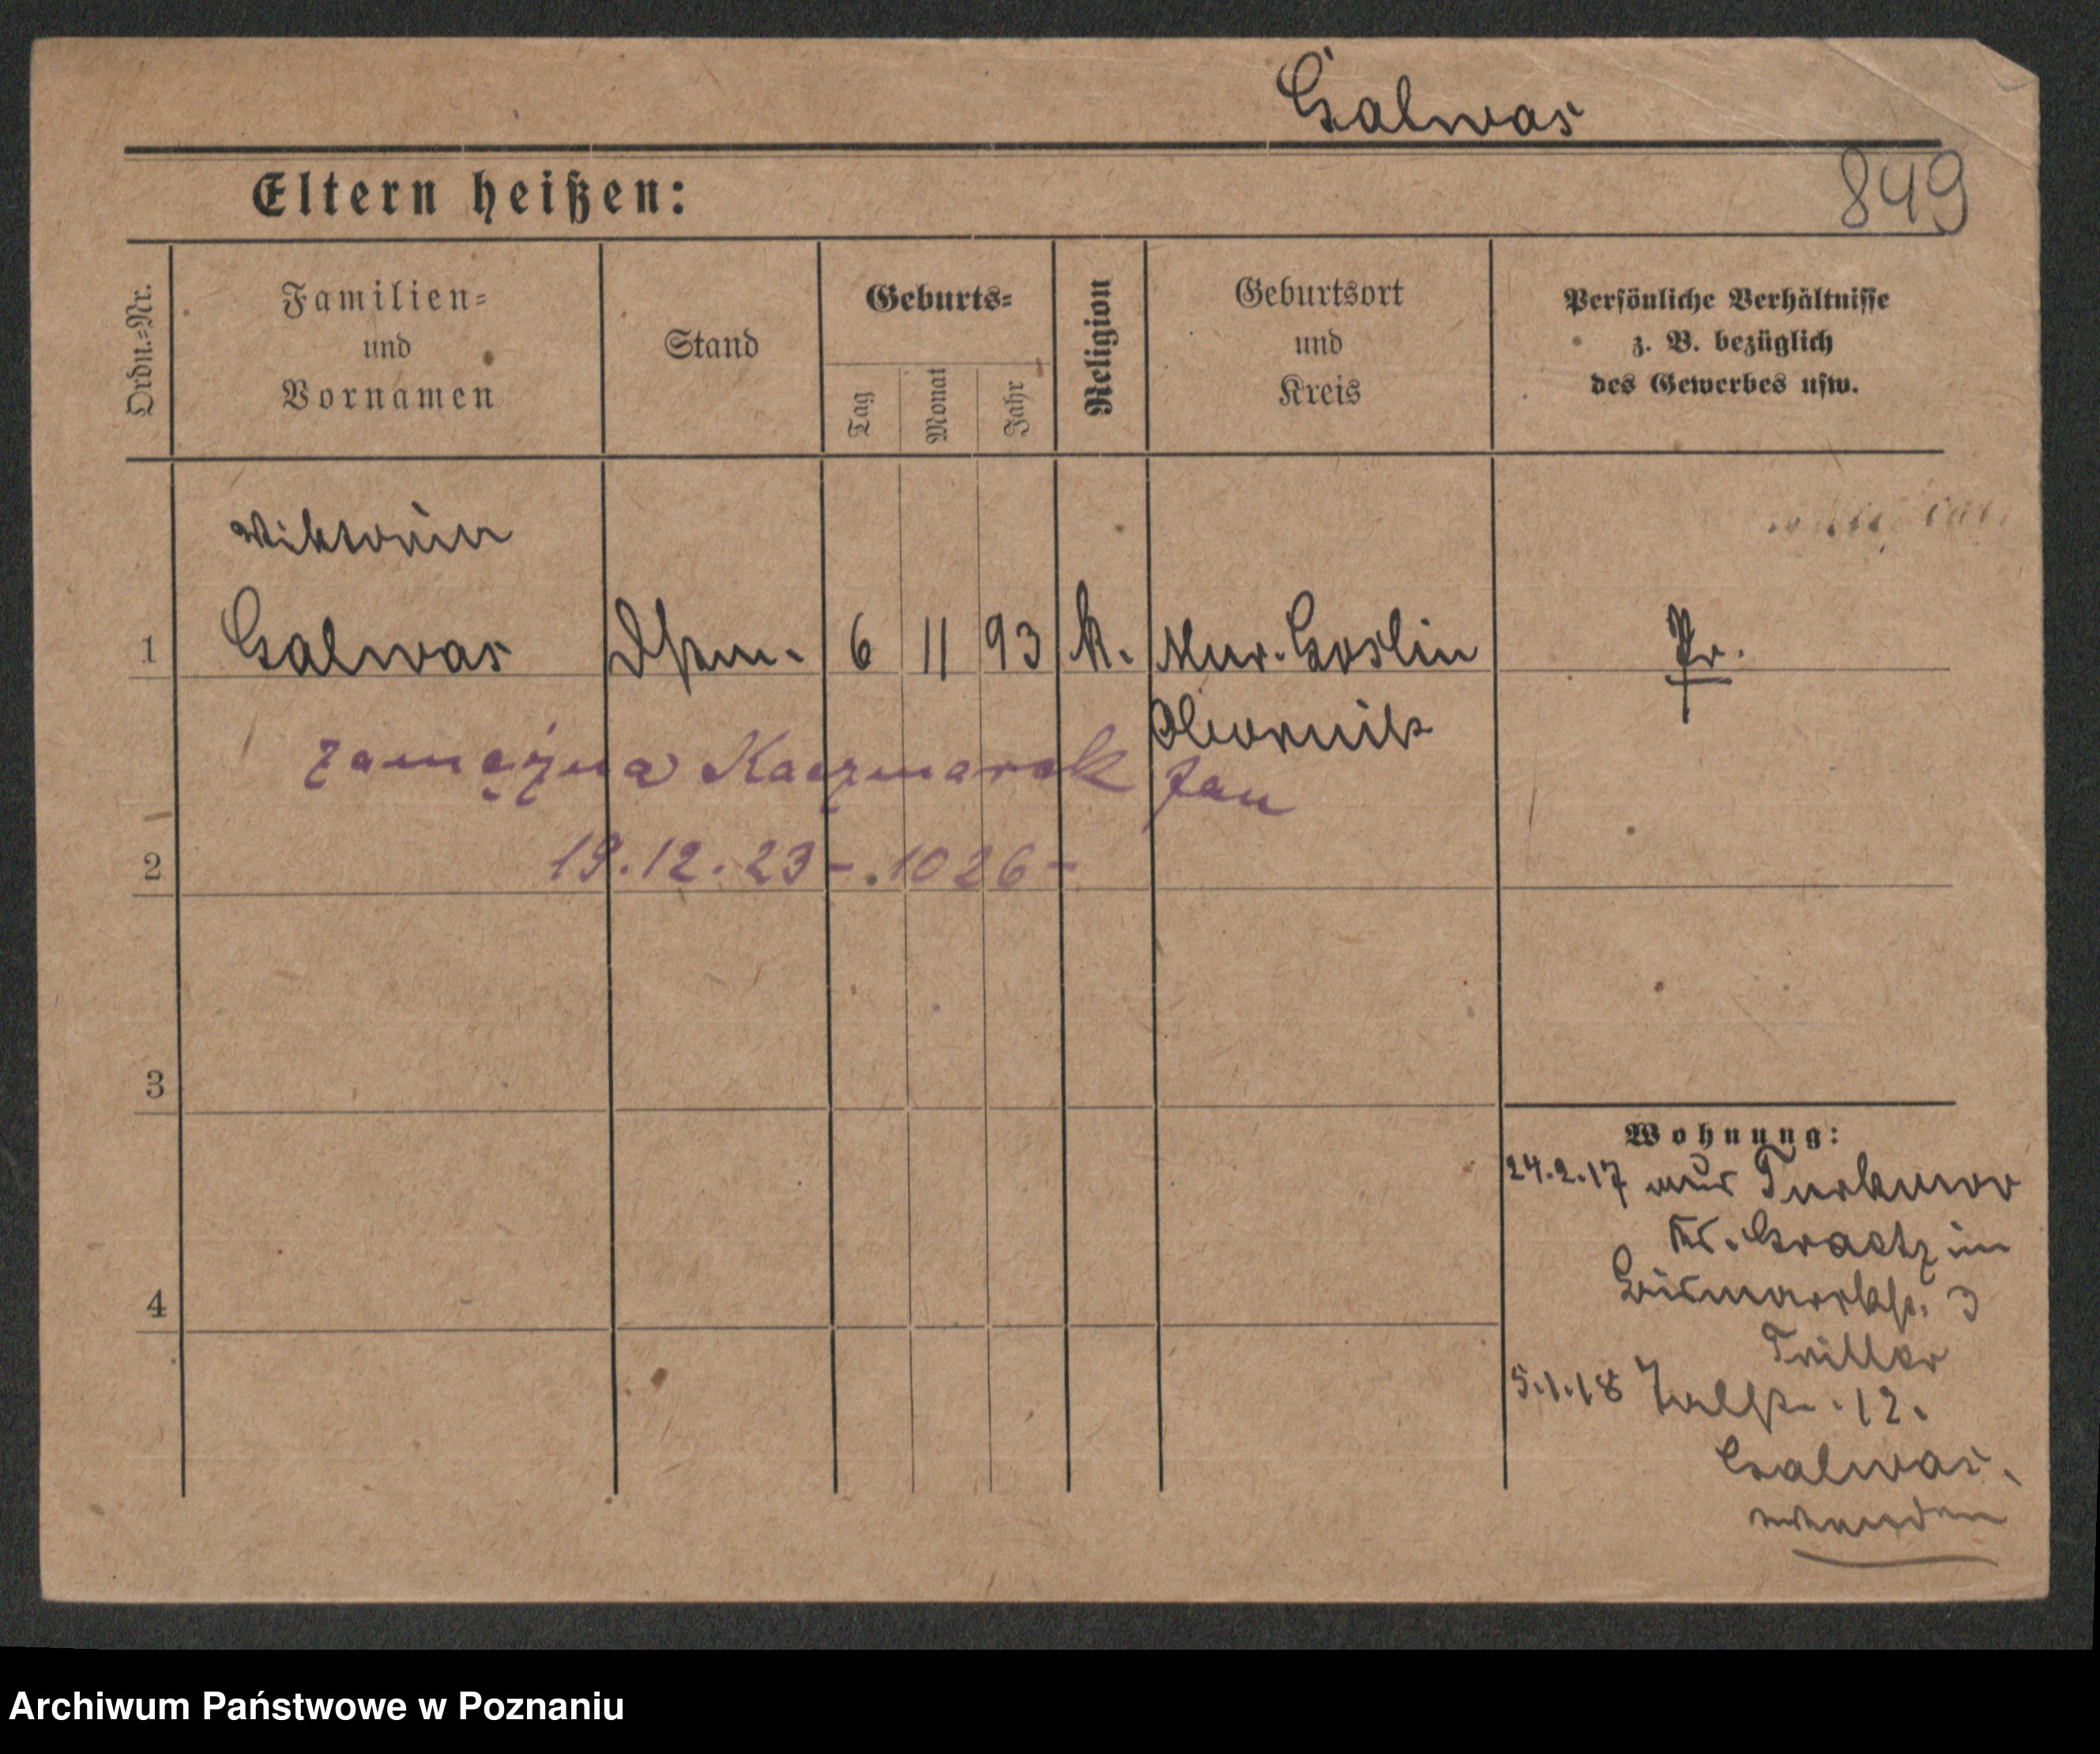 Galwas
849
Eltern heißen:
Ordn.=Nr.
Familien=
und
Vornamen
Stand
Geburts=
Tag
Monat
Jahr
Religion
Geburtsort
und
Kreis
Persönliche Verhältnisse
z. B. bezüglich
des Gewerbes usw.
Viktoria
1 Galwas Dstm. 6 11 93 k. Mur. Goslin Pr.
Obornik
zamężna Kaczmarek Jan
2 19.12.23 - 1026 -
3
4
Wohnung:
24.2.17 aus Turkowo
Kr. Graetz in
Bismarckstr. 3
Triller
5.1.18 Halbst. 12.
Galwas.
wenden
Archiwum Państwowe w Poznaniu